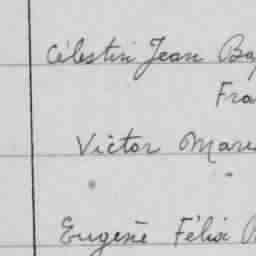 Célestin Jean Bap
Fra
Victor Mari
"
Eugène Félix